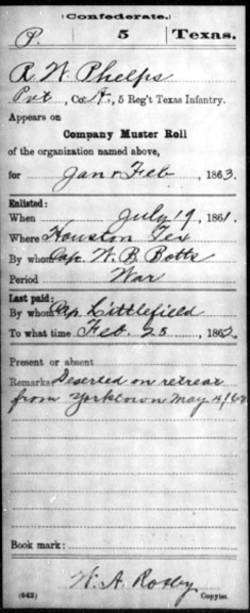 (Confederate.)
P. 5 Texas.
R. W. Phelps
Pvt, Co. A., 5 Reg't Texas Infantry.
Appears on
Company Muster Roll
of the organization named above,
for Jan & Feb, 1863.
Enlisted:
When July 19, 1861.
Where Houston Tex
By whom Cap. W. B. Botts
Period War
Last paid:
By whom Cap. Littlefield
To what time Feb. 28, 1862.
Present or absent
Remarks: Deserted on retreat
from Yorktown May 4/62
Book mark:
W. A. Rosley
(642) Copyist.